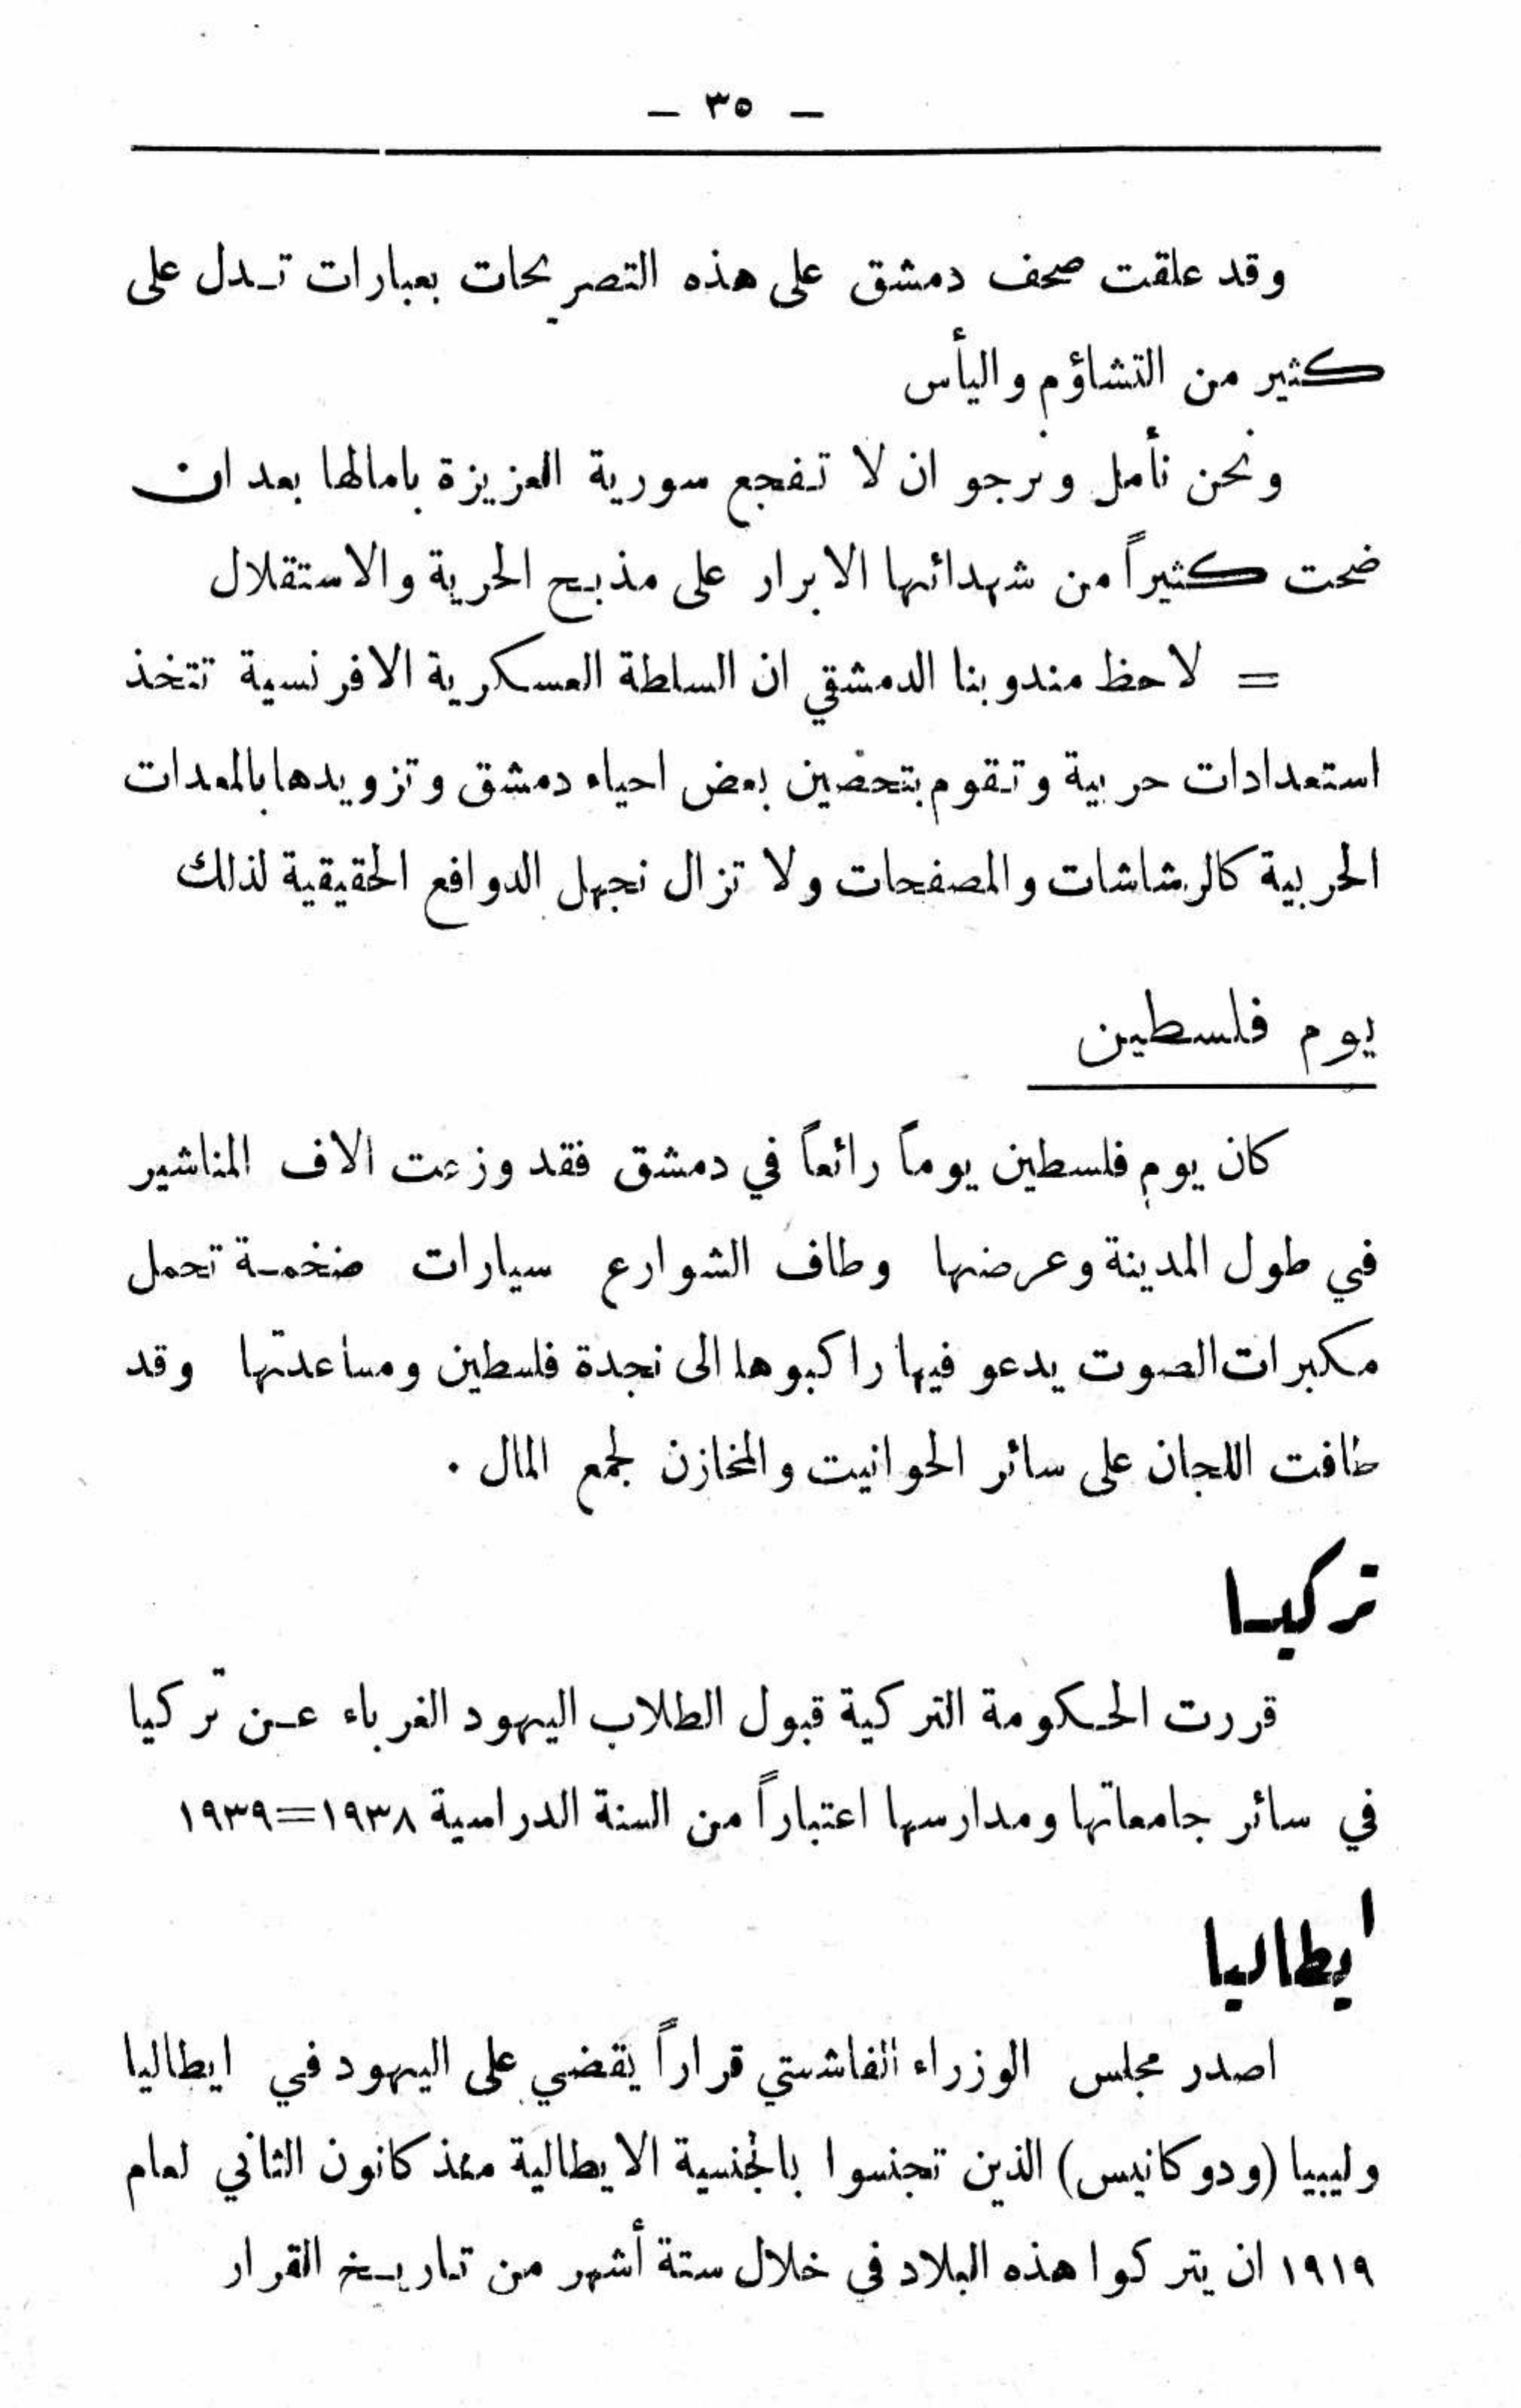 — ٣٥ —
وقد علقت صحف دمشق على هذه التصريحات بعبارات تدل على
كثير من التشاؤم واليأس
ونحن نأمل ونرجو ان لا تفجع سورية العزيزة بامالها بعد ان
ضحت كثيراً من شهدائها الابرار على مذبح الحرية والاستقلال
= لاحظ مندوبنا الدمشقي ان السلطة العسكرية الافرنسية تتخذ
استعدادات حربية وتقوم بتحضين بعض احياء دمشق وتزويدها بالمعدات
الحربية كالرشاشات والمصفحات ولا تزال نجهل الدوافع الحقيقية لذلك
يوم فلسطين
كان يوم فلسطين يوماً رائعاً في دمشق فقد وزعت الاف المناشير
في طول المدينة وعرضها وطاف الشوارع سيارات ضخمة تحمل
مكبرات الصوت يدعو فيها راكبوها الى نجدة فلسطين ومساعدتها وقد
طافت اللجان على سائر الحوانيت والمخازن لجمع المال .
تركيا
قررت الحكومة التركية قبول الطلاب اليهود الغرباء عن تركيا
في سائر جامعاتها ومدارسها اعتباراً من السنة الدراسية ١٩٣٨=١٩٣٩
ايطاليا
اصدر مجلس الوزراء الفاشستي قراراً يقضي على اليهود في ايطاليا
وليبيا (ودوكانيس) الذين تجنسوا بالجنسية الايطالية منذ كانون الثاني لعام
١٩١٩ ان يتركوا هذه البلاد في خلال ستة أشهر من تاريخ القرار